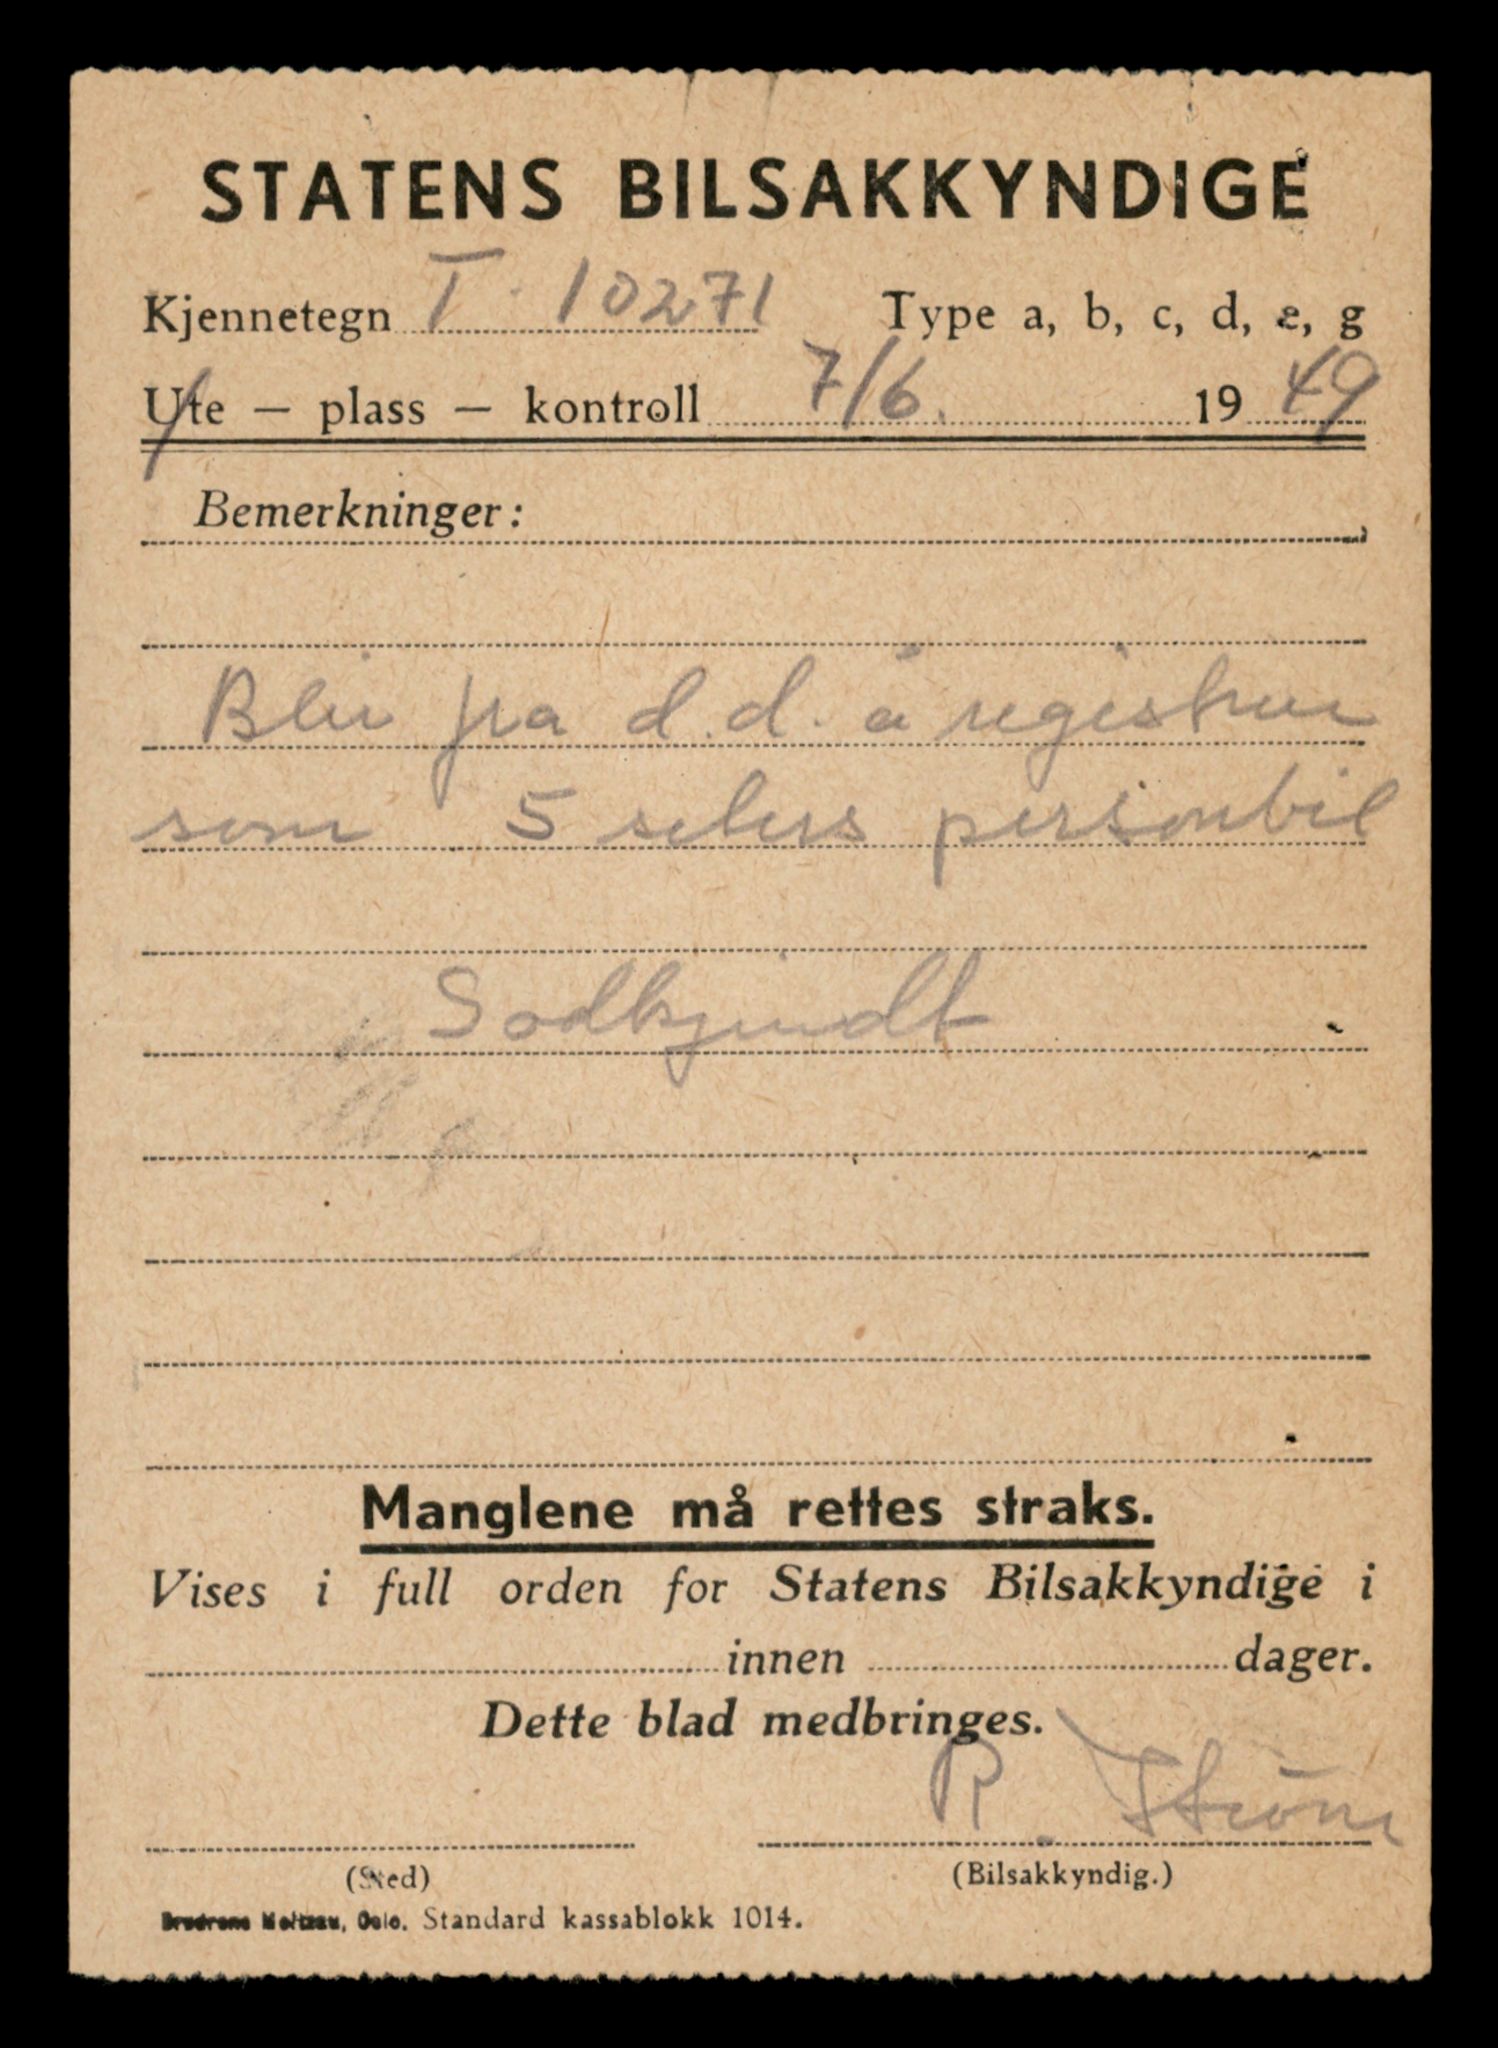 STATENS BILSAKKYNDIGE
Kjennetegn T. 10271 Type a, b, c, d, e, g
Ute — plass — kontroll 7/6. 1949
Bemerkninger:
Blir fra d.d. å registrere
som 5 seters personbil
Godkjendt
Manglene må rettes straks.
Vises i full orden for Statens Bilsakkyndige i
innen dager.
Dette blad medbringes.
R. Strøm
(Sted) (Bilsakkyndig.)
Brødrene Meltzau, Oslo. Standard kassablokk 1014.